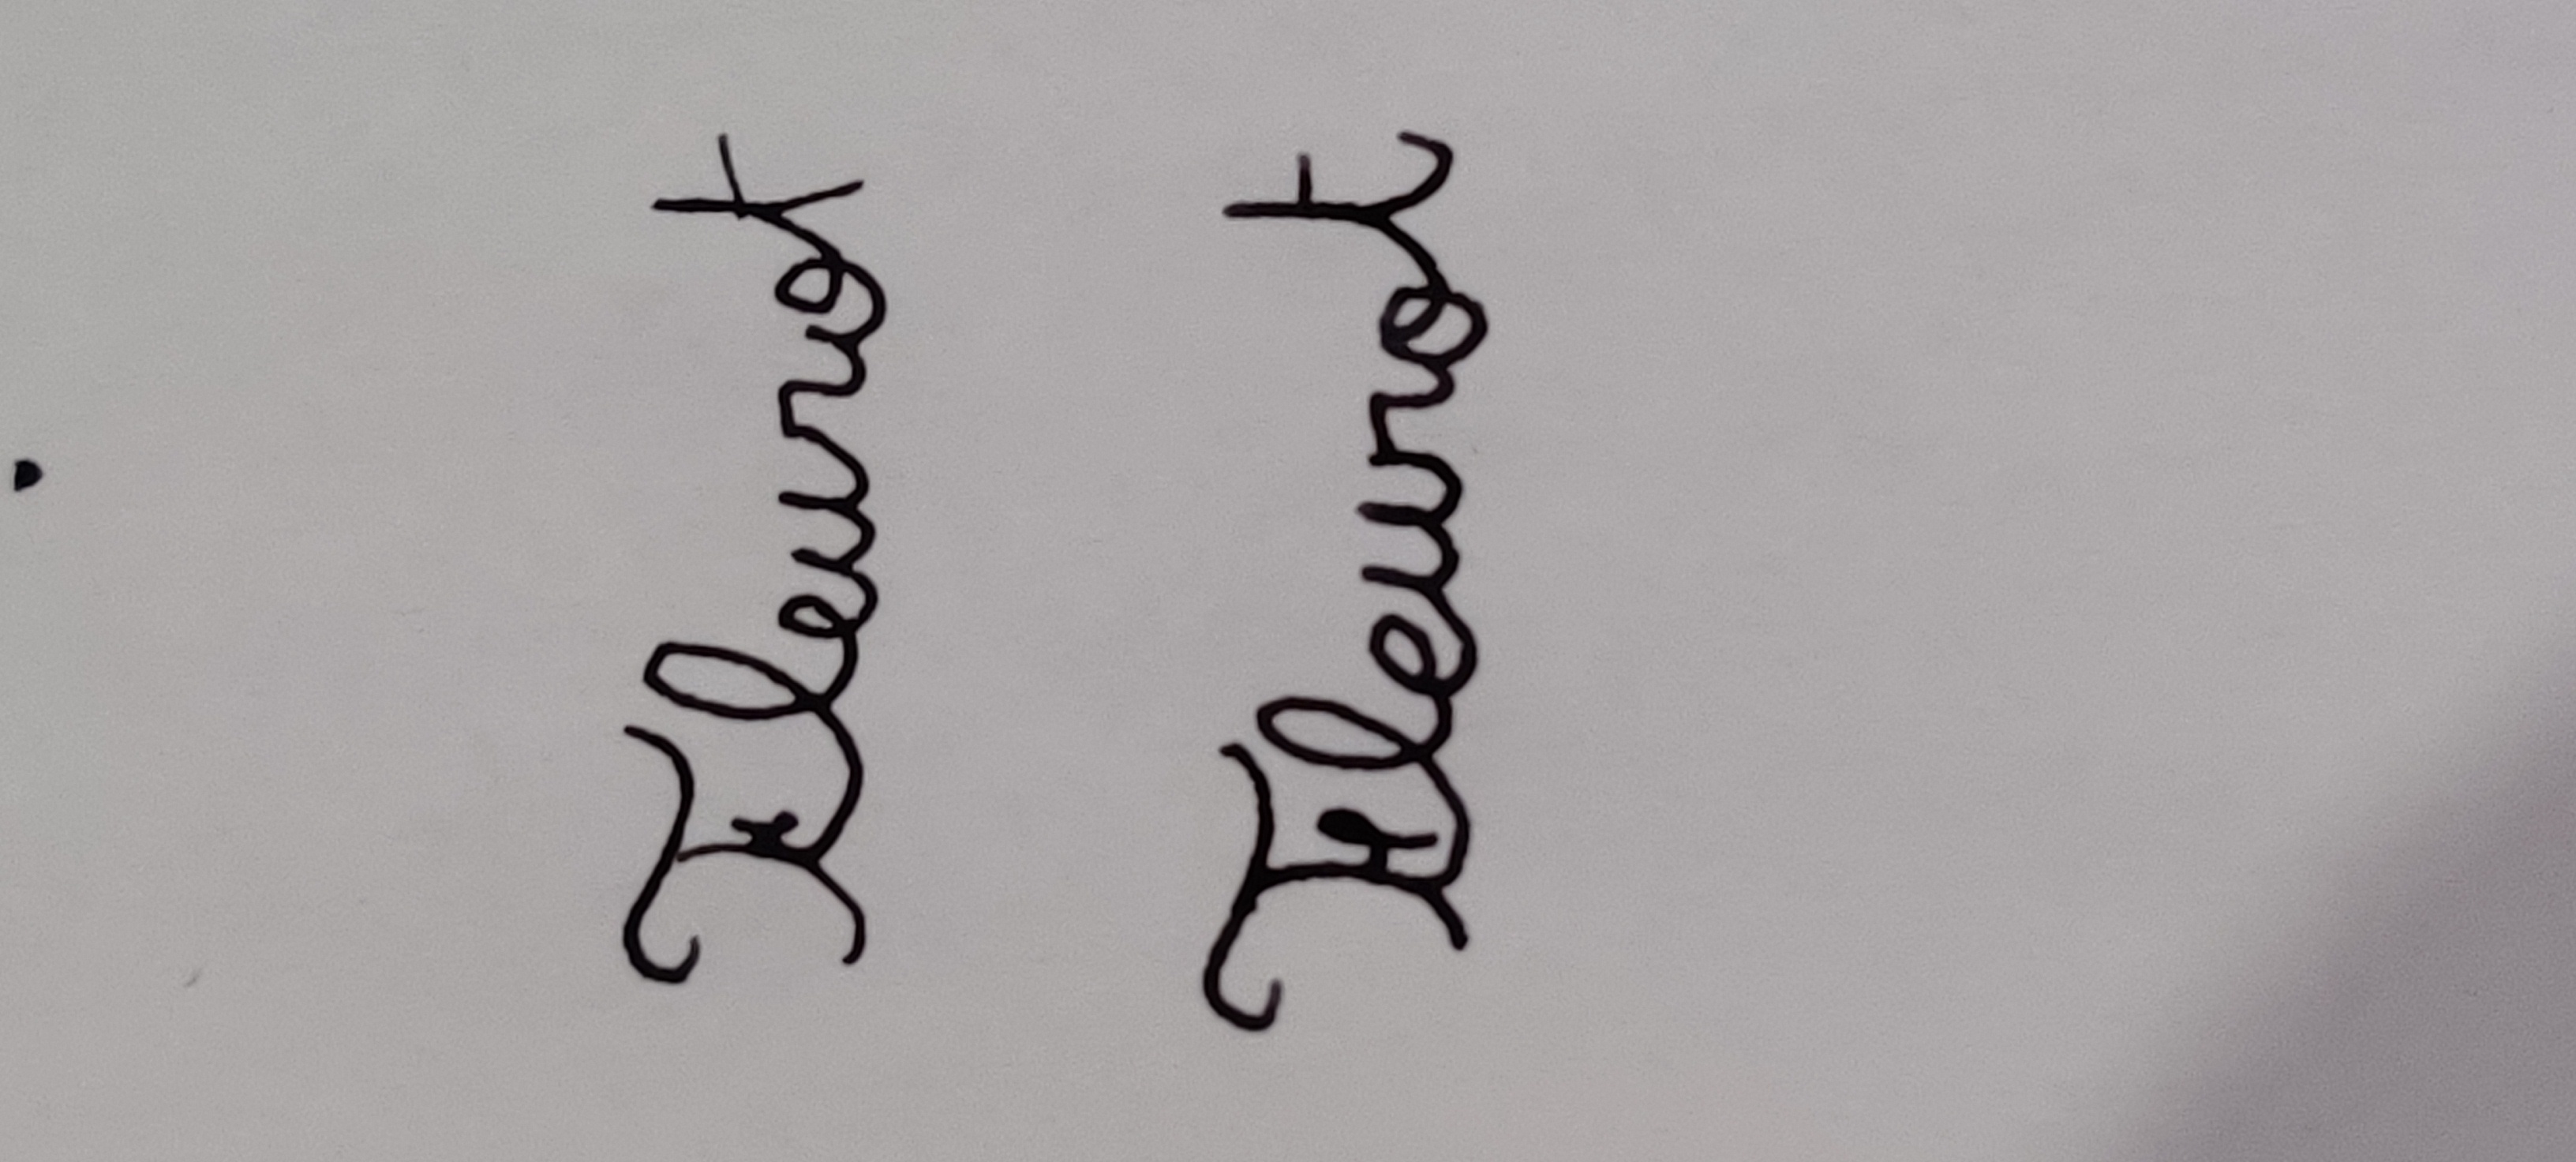 Fleurot
Fleurot